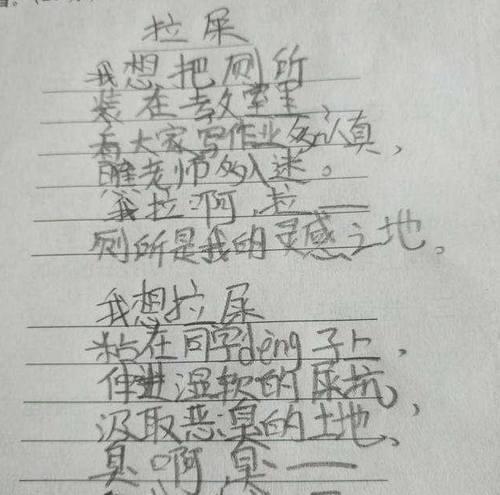 拉屎
我想把厕所
装在教室里
看大家写作业多认真，
瞧老师多入迷。
我拉啊，拉——
厕所是我的灵感之地。
我想拉屎
粘在同学dèng子上，
伸进湿软的屎坑，
汲取恶臭的土地、
臭啊臭——